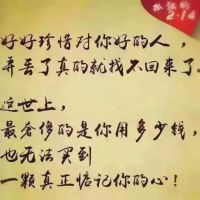 孤独的
2·14
好好珍惜对你好的人，
弄丢了真的就找不回来了。
这世上，
最奢侈的是你用多少钱，
也无法买到
一颗真正惦记你的心！